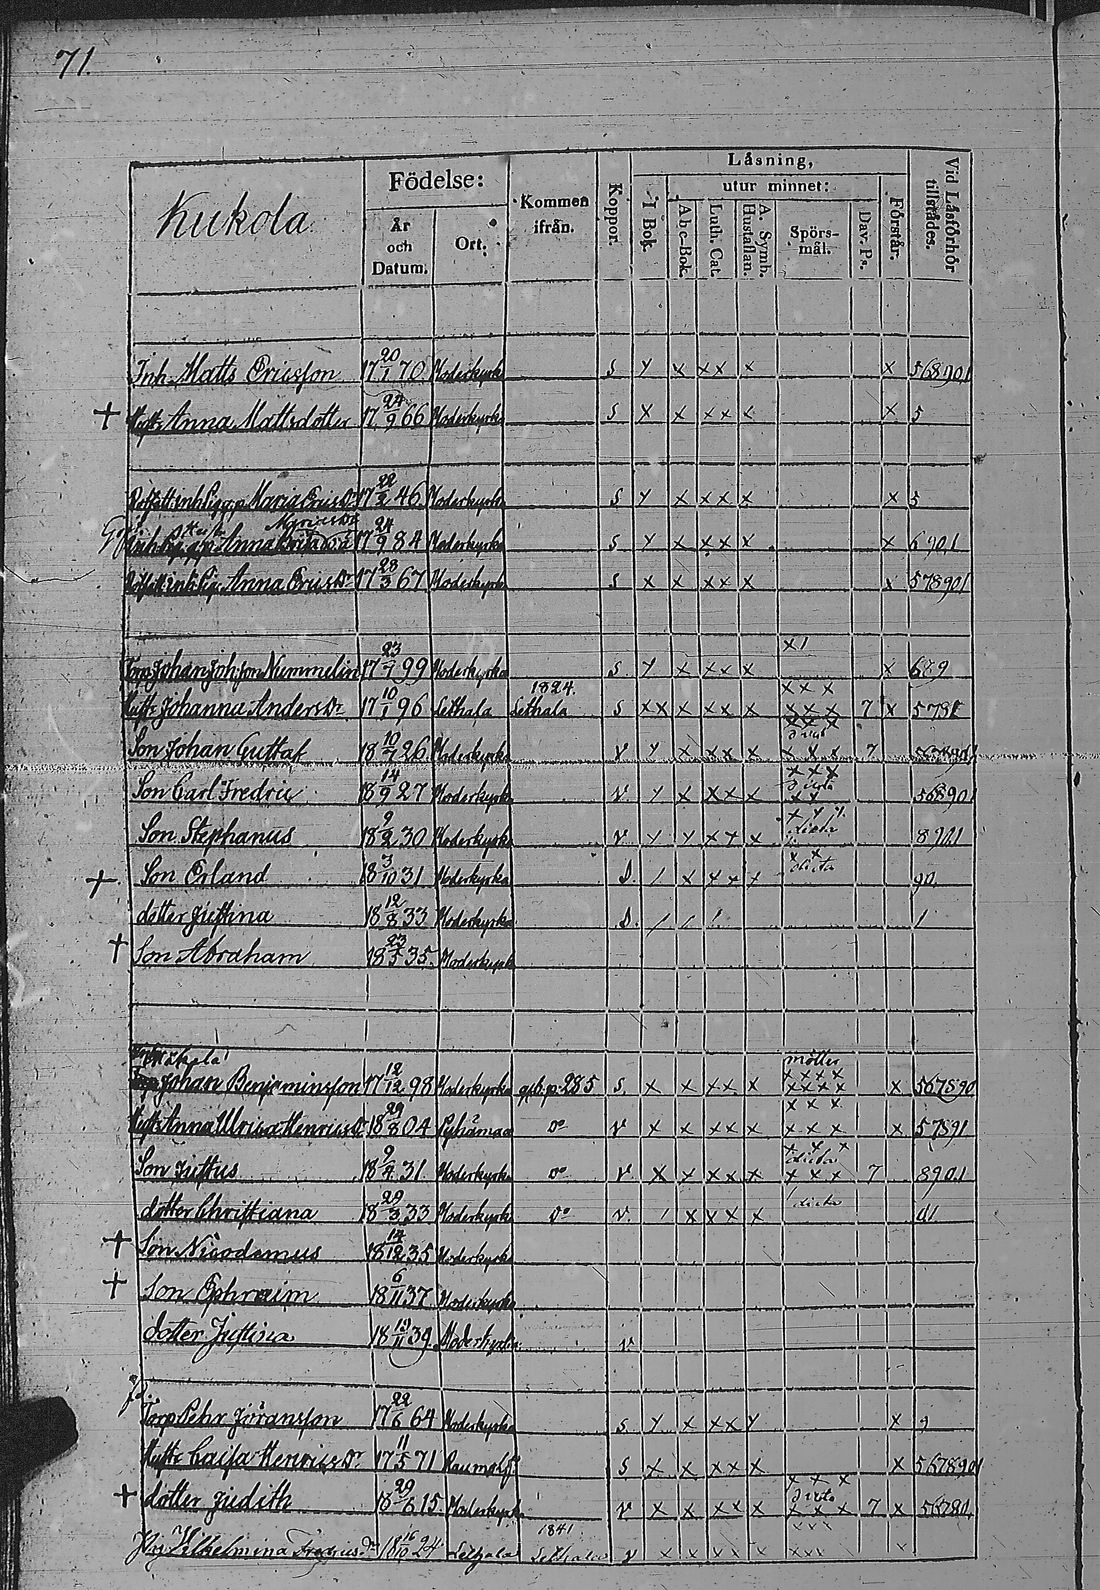 71.
Kukola
Födelse:
År och Datum.
Ort.
Kommen ifrån.
Koppor.
Låsning,
I Bok.
utur minnet:
Abc-Bok.
Luth. Cat.
A. Symb. Hustaflan.
Spörs-mål.
Dav. Ps.
Förstår.
Vid Låsförhör tillstädes.
Inh Matts Ericsson 17 20/1 70 Moderkyrk S Y x xx x x 568901
† Hust Anna Mattsdotter 17 24/9 66 Moderkyrk S X x xx x x 5
Maria Erics Dr 17 22/2 46 Moderkyrk S Y x xx x x 5
Anna 17 24/9 84 Moderkyrk S Y x xx x x 6901
Anna Erics Dr 17 28/3 67 Moderkyrk S x x xx x x 578901
x1
Torp Johan Johsson Nummelin 17 99 Moderkyrka S Y x xx x x 689
1824. xxx
Hust Johanna Anders Dr 17 10/1 96 Lethala Lethala S xx x xx x xxx 7 x
Son Johan Gustaf 18 26 Moderkyrk V Y x xx x xxx 7
xxx
Son Carl Fredric 18 14/9 27 Moderkyrk V Y x xx x 568901
Son Stephanus 18 9/2 30 Moderkyrk V Y Y xx x dicta 8901
† Son Erland 18 3/10 31 Moderkyrka S. / x xx x dicta 90.
dotter Justina 18 12/8 33 Moderkyrka S. / / / 1
† Son Abraham 18 23/5 35. Moderkyrk
möller
xxxx
Johan Benjaminsson 17 12/12 98 Moderkyrka p. 285 S. x x xx x xxxx x 567890
xxx
Hust Anna Ulrica Henrics Dr 18 04 Pyhämaa Do V x x xx x xxx x 57891
dicta
Son Justus 18 9/2 31. Moderkyrk Do V x x xx x xxx 7 8901
dotter Christiana 18 29/3 33 Moderkyrk Do V. / x xx x dicta
† Son Nicodemus 18 14/12 35 Moderkyrk
† Son Ephraim 18 6/11 37. Moderkyrka
dotter Justina 18 39. Moderkyrka V
Torp Pehr Jöransson 17 22/6 64 Moderkyrk S Y x xx Y x 9
Hust Caisa Henrics Dr 17 11/5 71 Raumo S x x xx x x 5678901
xxx
† dotter Judith 18 29/6 15 Moderkyrk V x x xx x xxx 7 x
1841. xxx
Wilhelmina Fredrics Dr 18 16/10 24 Lethala Lethala V x x xx x xxx x